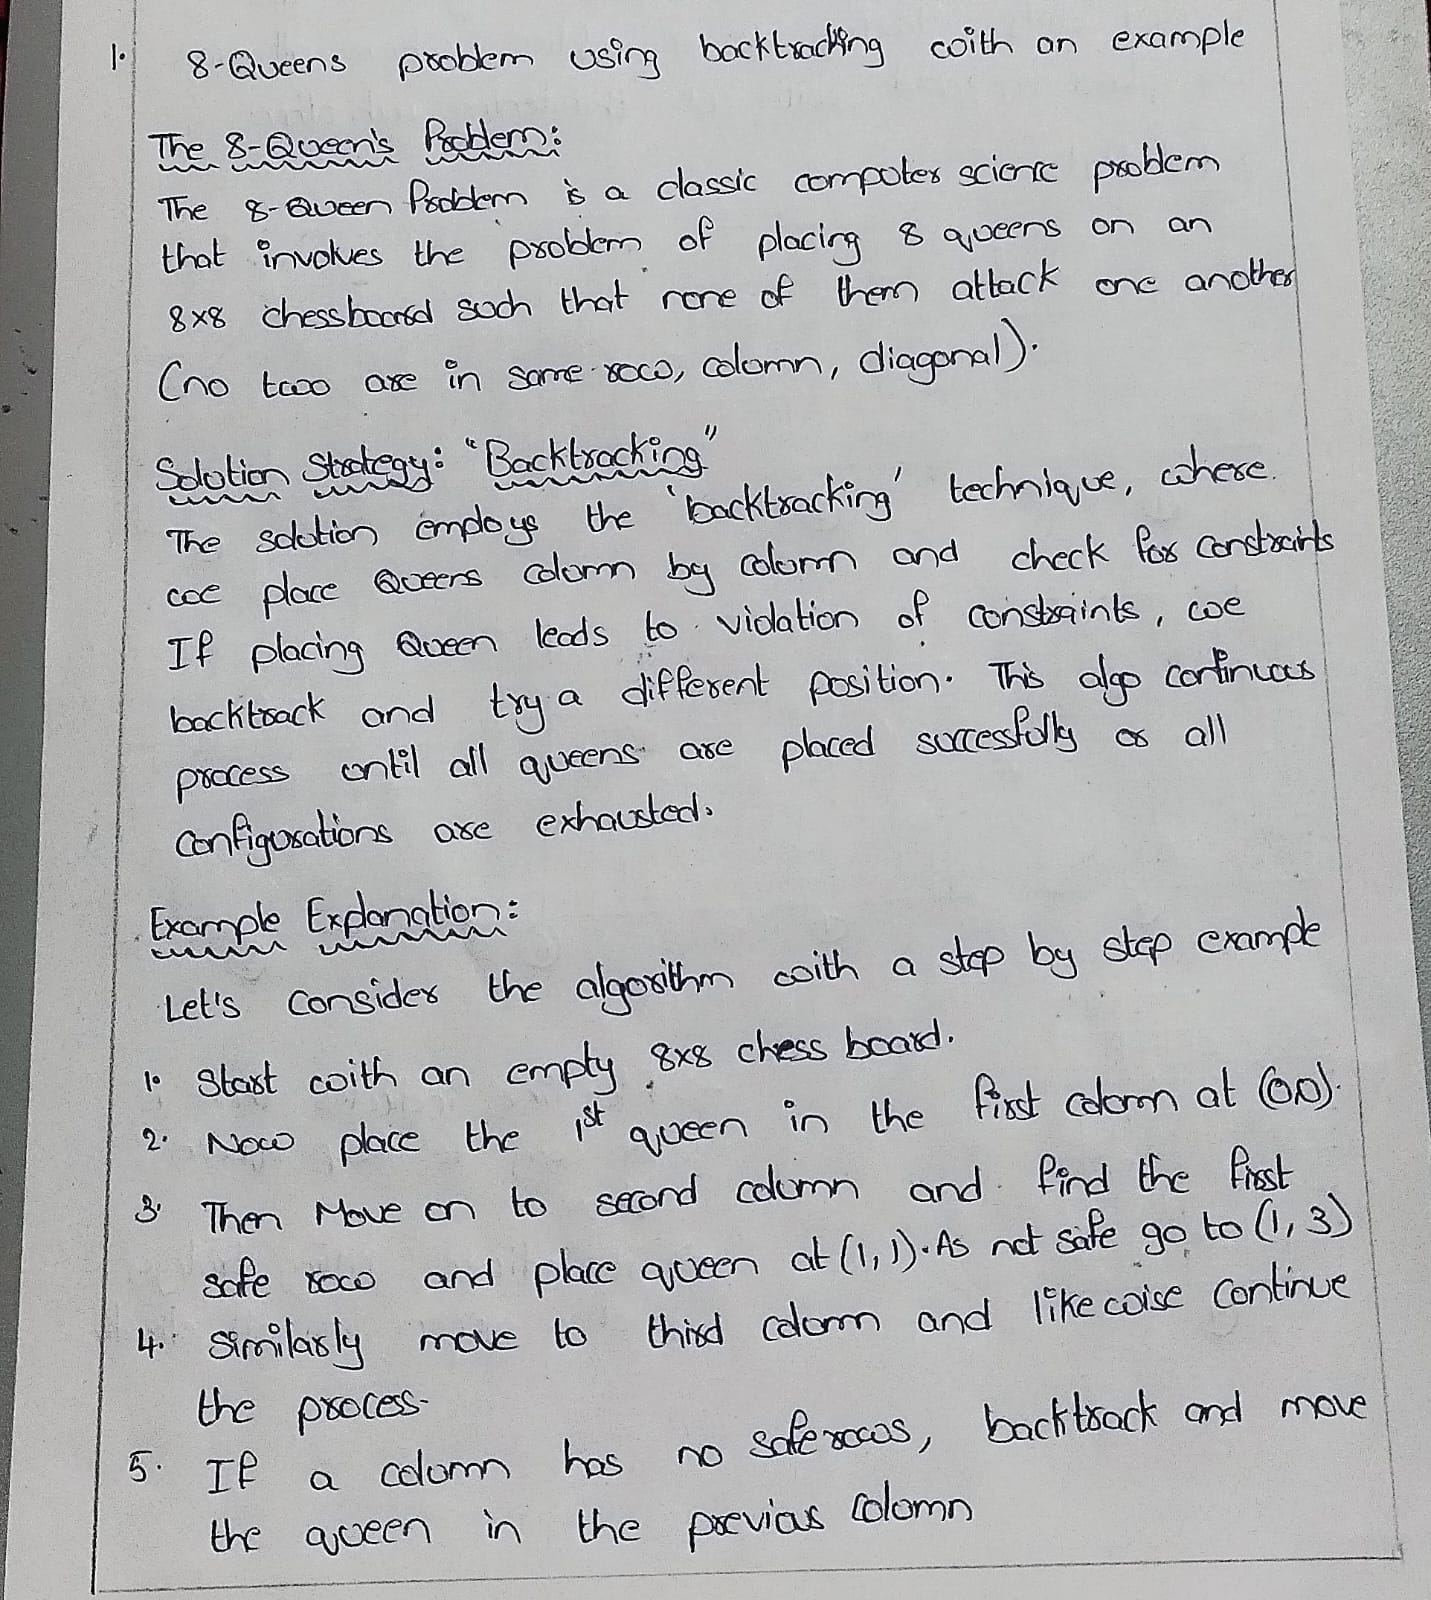 1. 8-Queens problem using backtracking with an example
The 8-Queen's Problem:
The 8-Queen Problem is a classic computer science problem
that involves the problem of placing 8 queens on an
8x8 chessboard such that none of them attack one another
(no two are in same row, column, diagonal).
Solution Strategy: "Backtracking"
The solution employs the 'backtracking' technique, where
we place Queens column by column and check for constraints
If placing Queen leads to violation of constraints, we
backtrack and try a different position. This algo continuous
process until all queens are placed successfully or all
configurations are exhausted.
Example Explanation:
Let's consider the algorithm with a step by step example
1. Start with an empty 8x8 chess board.
2. Now place the 1st queen in the first column at (0,0).
3. Then Move on to second column and find the first
safe row and place queen at (1,1). As not safe go to (1,3)
4. Similarly move to third column and likewise continue
the process.
5. If a column has no safe rows, backtrack and move
the queen in the previous column